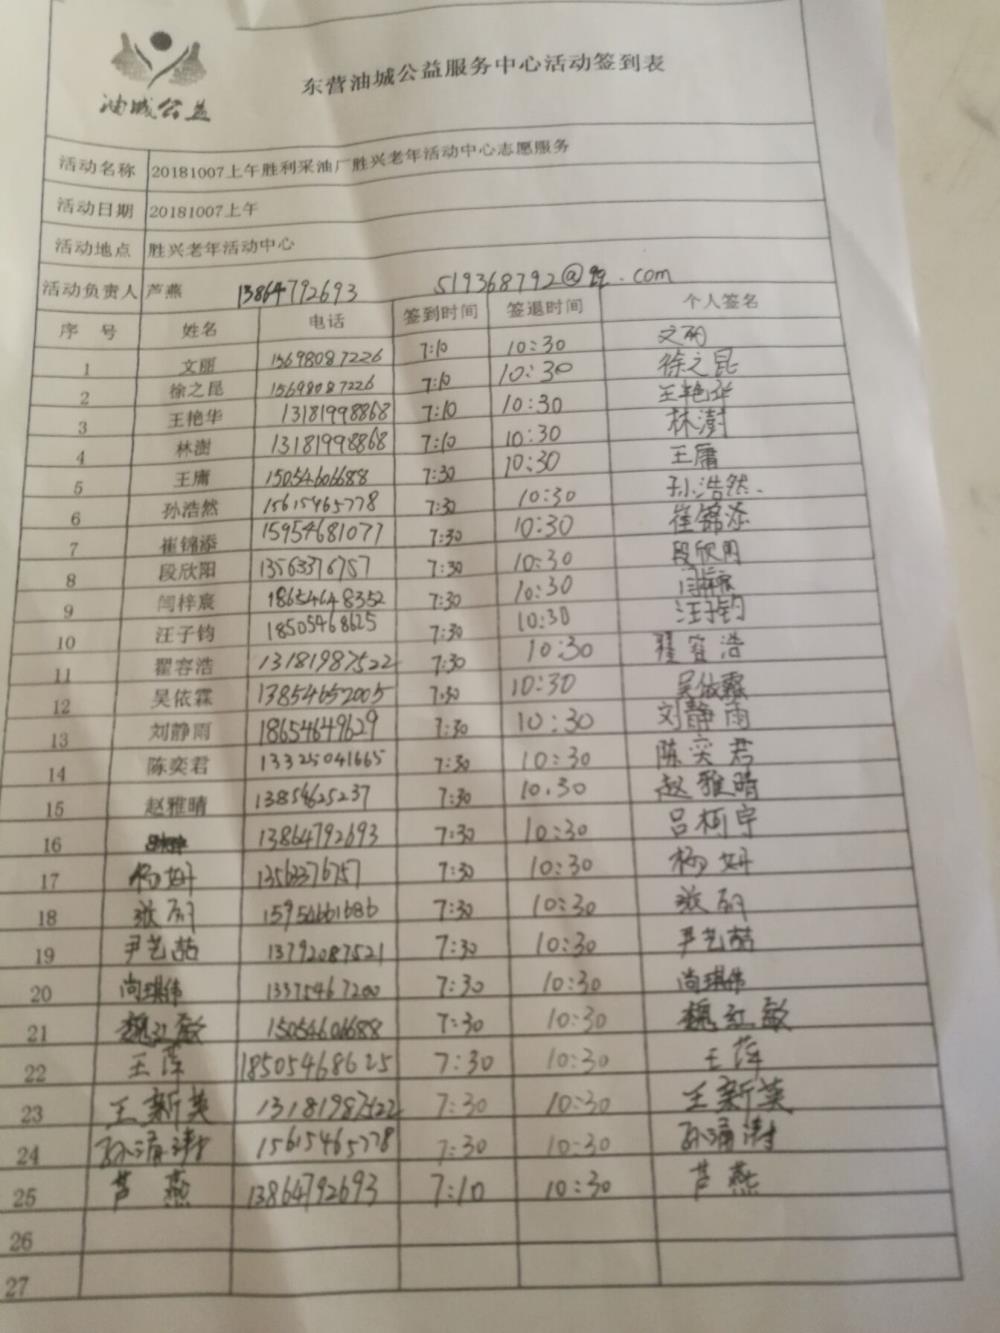 油城公益
东营油城公益服务中心活动签到表
活动名称 20181007上午胜利采油厂胜兴老年活动中心志愿服务
活动日期 20181007上午
活动地点 胜兴老年活动中心
活动负责人 芦燕 13864792693 519368792@qq.com
序 号 姓名 电话 签到时间 签退时间 个人签名
1 文丽 15698087226 7:10 10:30 文丽
2 徐之昆 15698087226 7:10 10:30 徐之昆
3 王艳华 13181998868 7:10 10:30 王艳华
4 林澍 13181998868 7:10 10:30 林澍
5 王庸 15054606688 7:30 10:30 王庸
6 孙浩然 15615465778 7:30 10:30 孙浩然.
7 崔锦添 15954681077 7:30 10:30 崔锦添
8 段欣阳 13563376757 7:30 10:30 段欣阳
9 闫梓宸 18654648352 7:30 10:30
10 汪子钧 18505468625 7:30 10:30 汪子钧
11 翟容浩 13181987522 7:30 10:30 翟容浩
12 吴依霖 13854652005 7:30 10:30 吴依霖
13 刘静雨 18654649629 7:30 10:30 刘静雨
14 陈奕君 13325041665 7:30 10:30 陈奕君
15 赵雅晴 13854625237 7:30 10.30 赵雅晴
16 13864792693 7:30 10:30 吕柯宇
17 杨妍 13563376757 7:30 10:30 杨妍
18 张丽 15954661686 7:30 10:30 张丽
19 尹艺喆 13792087521 7:30 10:30 尹艺喆
20 尚琪伟 13375467200 7:30 10:30 尚琪伟
21 魏红敏 15054606688 7:30 10:30 魏红敏
22 王萍 18505468625 7:30 10:30 王萍
23 王新英 13181987522 7:30 10:30 王新英
24 15615465778 7:30 10:30
25 芦燕 13864792693 7:10 10:30 芦燕
26
27